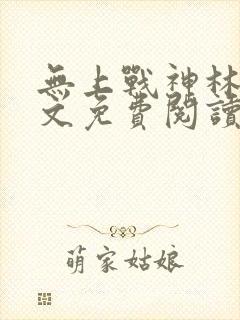 無上戰神林
文免費閱讀
萌家姑娘